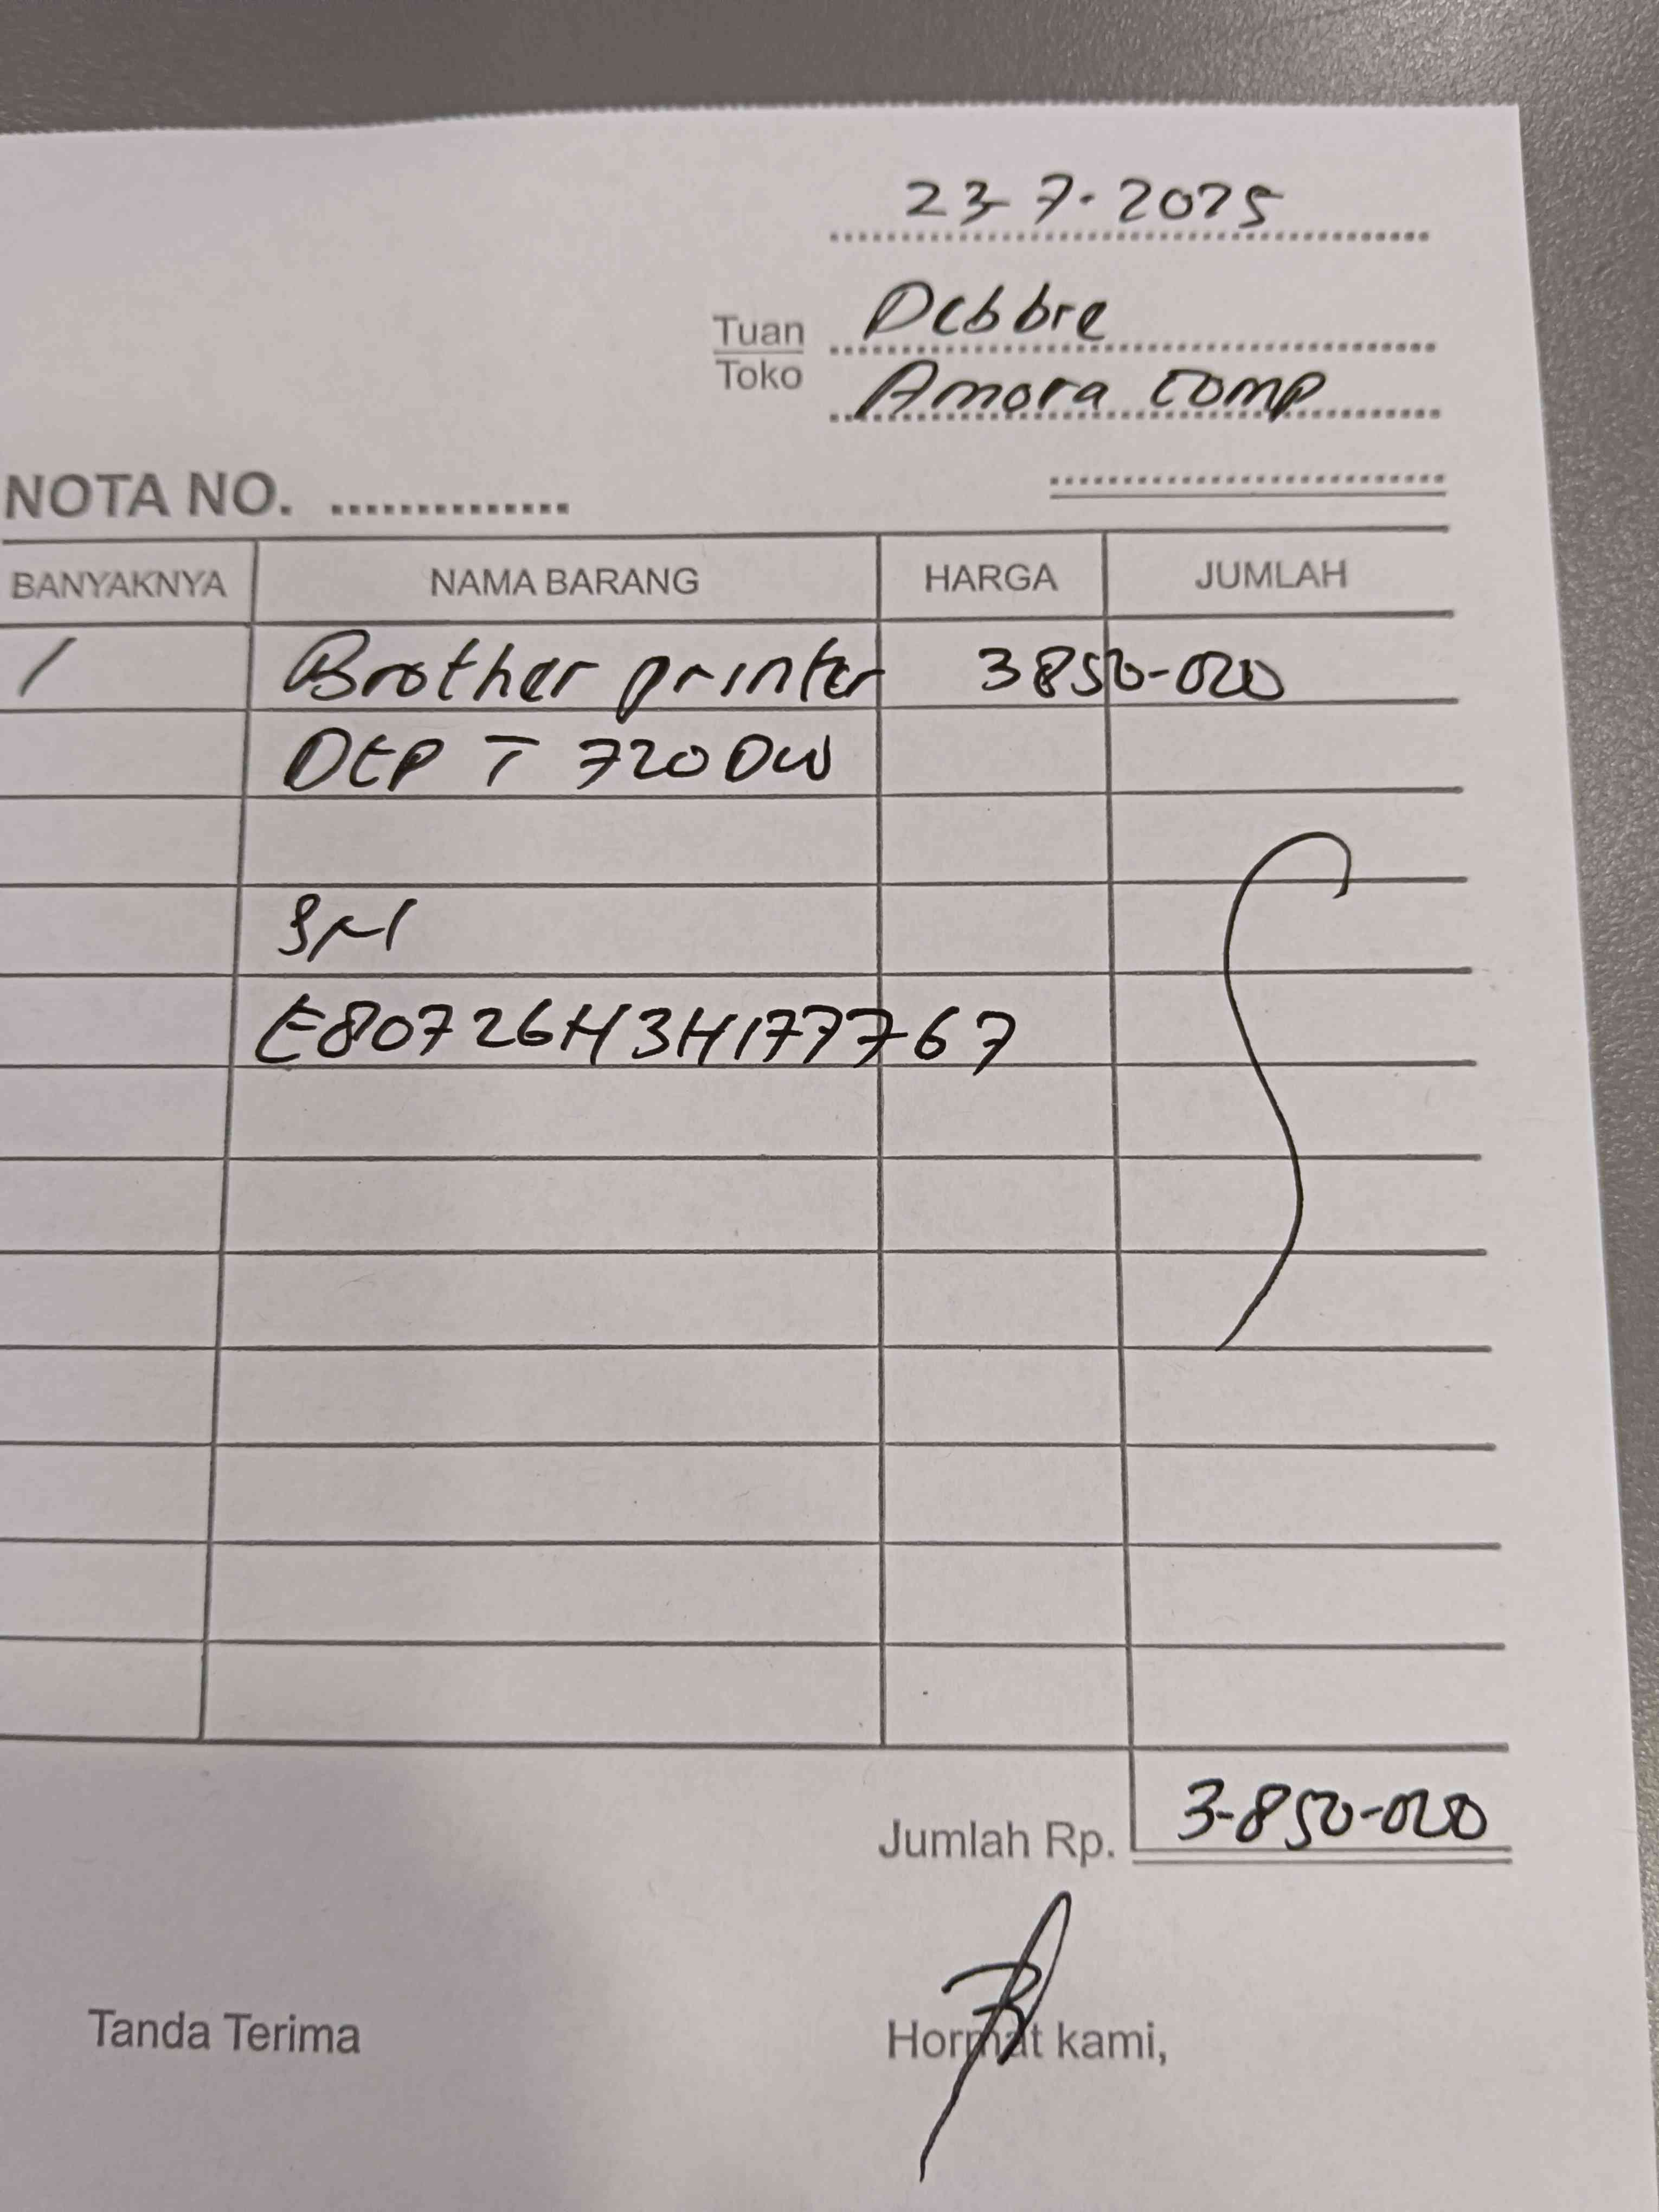 23-7-2025
Tuan Debbie
Toko Amora comp
NOTA NO. ..............
BANYAKNYA NAMA BARANG HARGA JUMLAH
1 Brother printer 3850-000
DCP T 720DW
SN
E80726H3H177767
Jumlah Rp. 3-850-000
Tanda Terima Hormat kami,